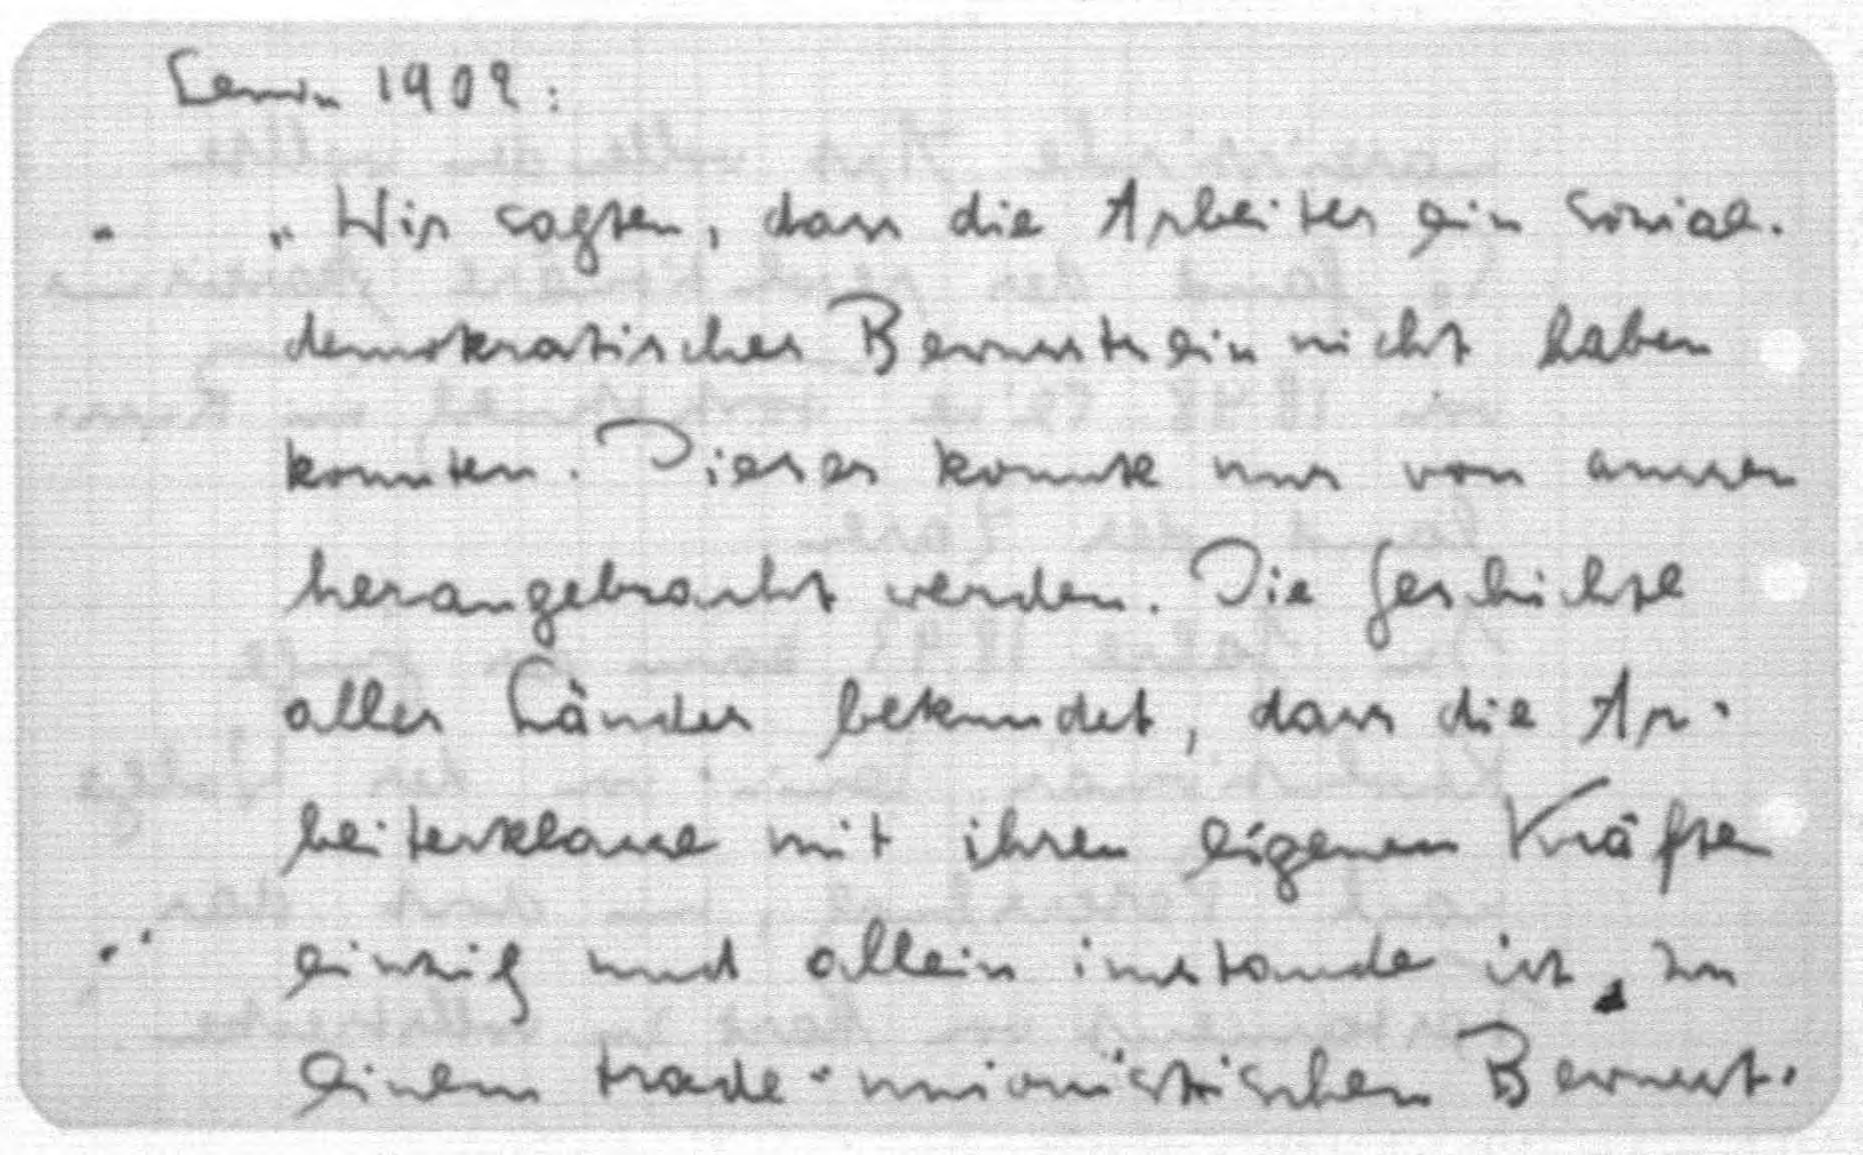 Lenin 1902:
„Wir sagten, dass die Arbeiter ein Sozial-
demokratisches Bewusstsein nicht haben
konnten. Dieses konnte nur von aussen
herangebracht werden. Die Geschichte
aller Länder bekundet, dass die Ar-
beiterklasse mit ihren eigenen Kräften
einzig und allein imstande ist, zu
einem trade-unionistischen Bewusst-